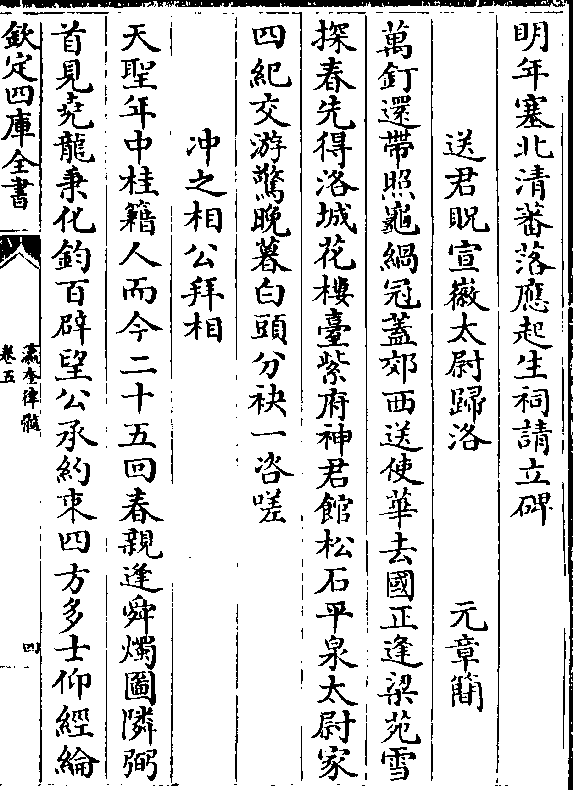 明年塞北清蕃落應起生祠請立碑
送君貺宣徽太尉歸洛　元章簡
萬釘還帶照龜緺冠蓋郊西送使華去國正逢梁苑雪
探春先得洛城花樓臺紫府神君館松石平泉太尉家
四紀交游驚晚暮白頭分袂一咨嗟
冲之相公拜相
天聖年中桂籍人而今二十五回春親逢舜燭圖隣弼
首見堯龍秉化鈞百辟望公承約束四方多士仰經綸
欽定四庫全書
瀛奎律髓
卷五
四